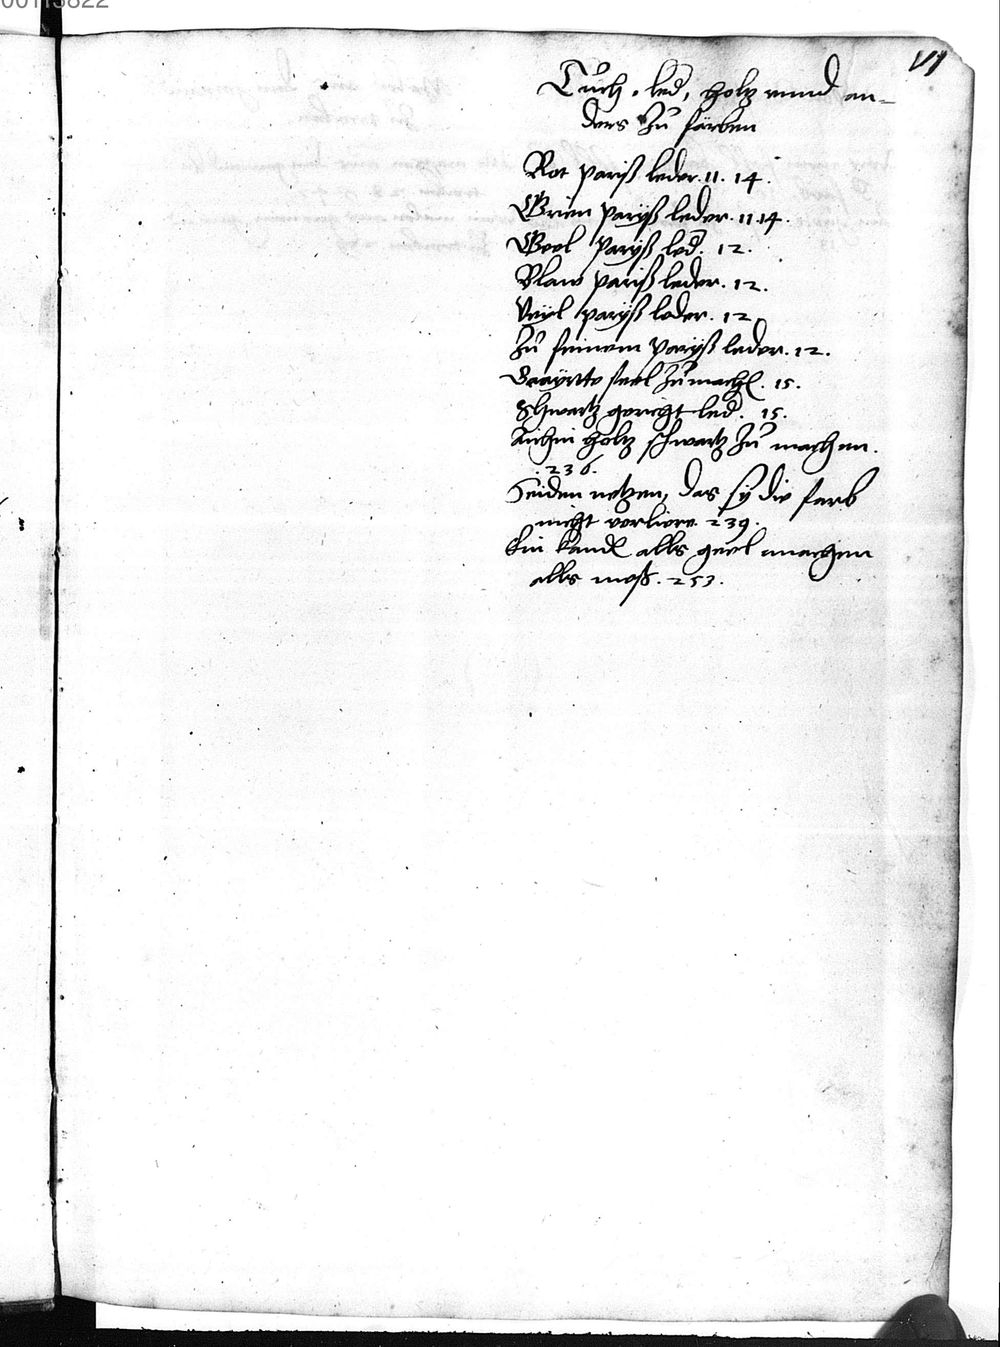 00113822
VI
Tůch, led, holtz vnnd an-
ders zů färben
Rot pariß leder. 11. 14.
Grien paryß leder. 11 14.
Geel paryß led. 12.
Blaw pariß leder. 12.
Veyel paryß leder. 12.
Zů feinem paryß leder. 12.
feel zů mach. 15.
Schwartz gericht led. 15.
Aichin holtz schwartz zů machen.
.236.
Seiden netzen, das sy die farb
nicht verliere. 239.
Ein kandl alls geel machenn
alls meß. 253.